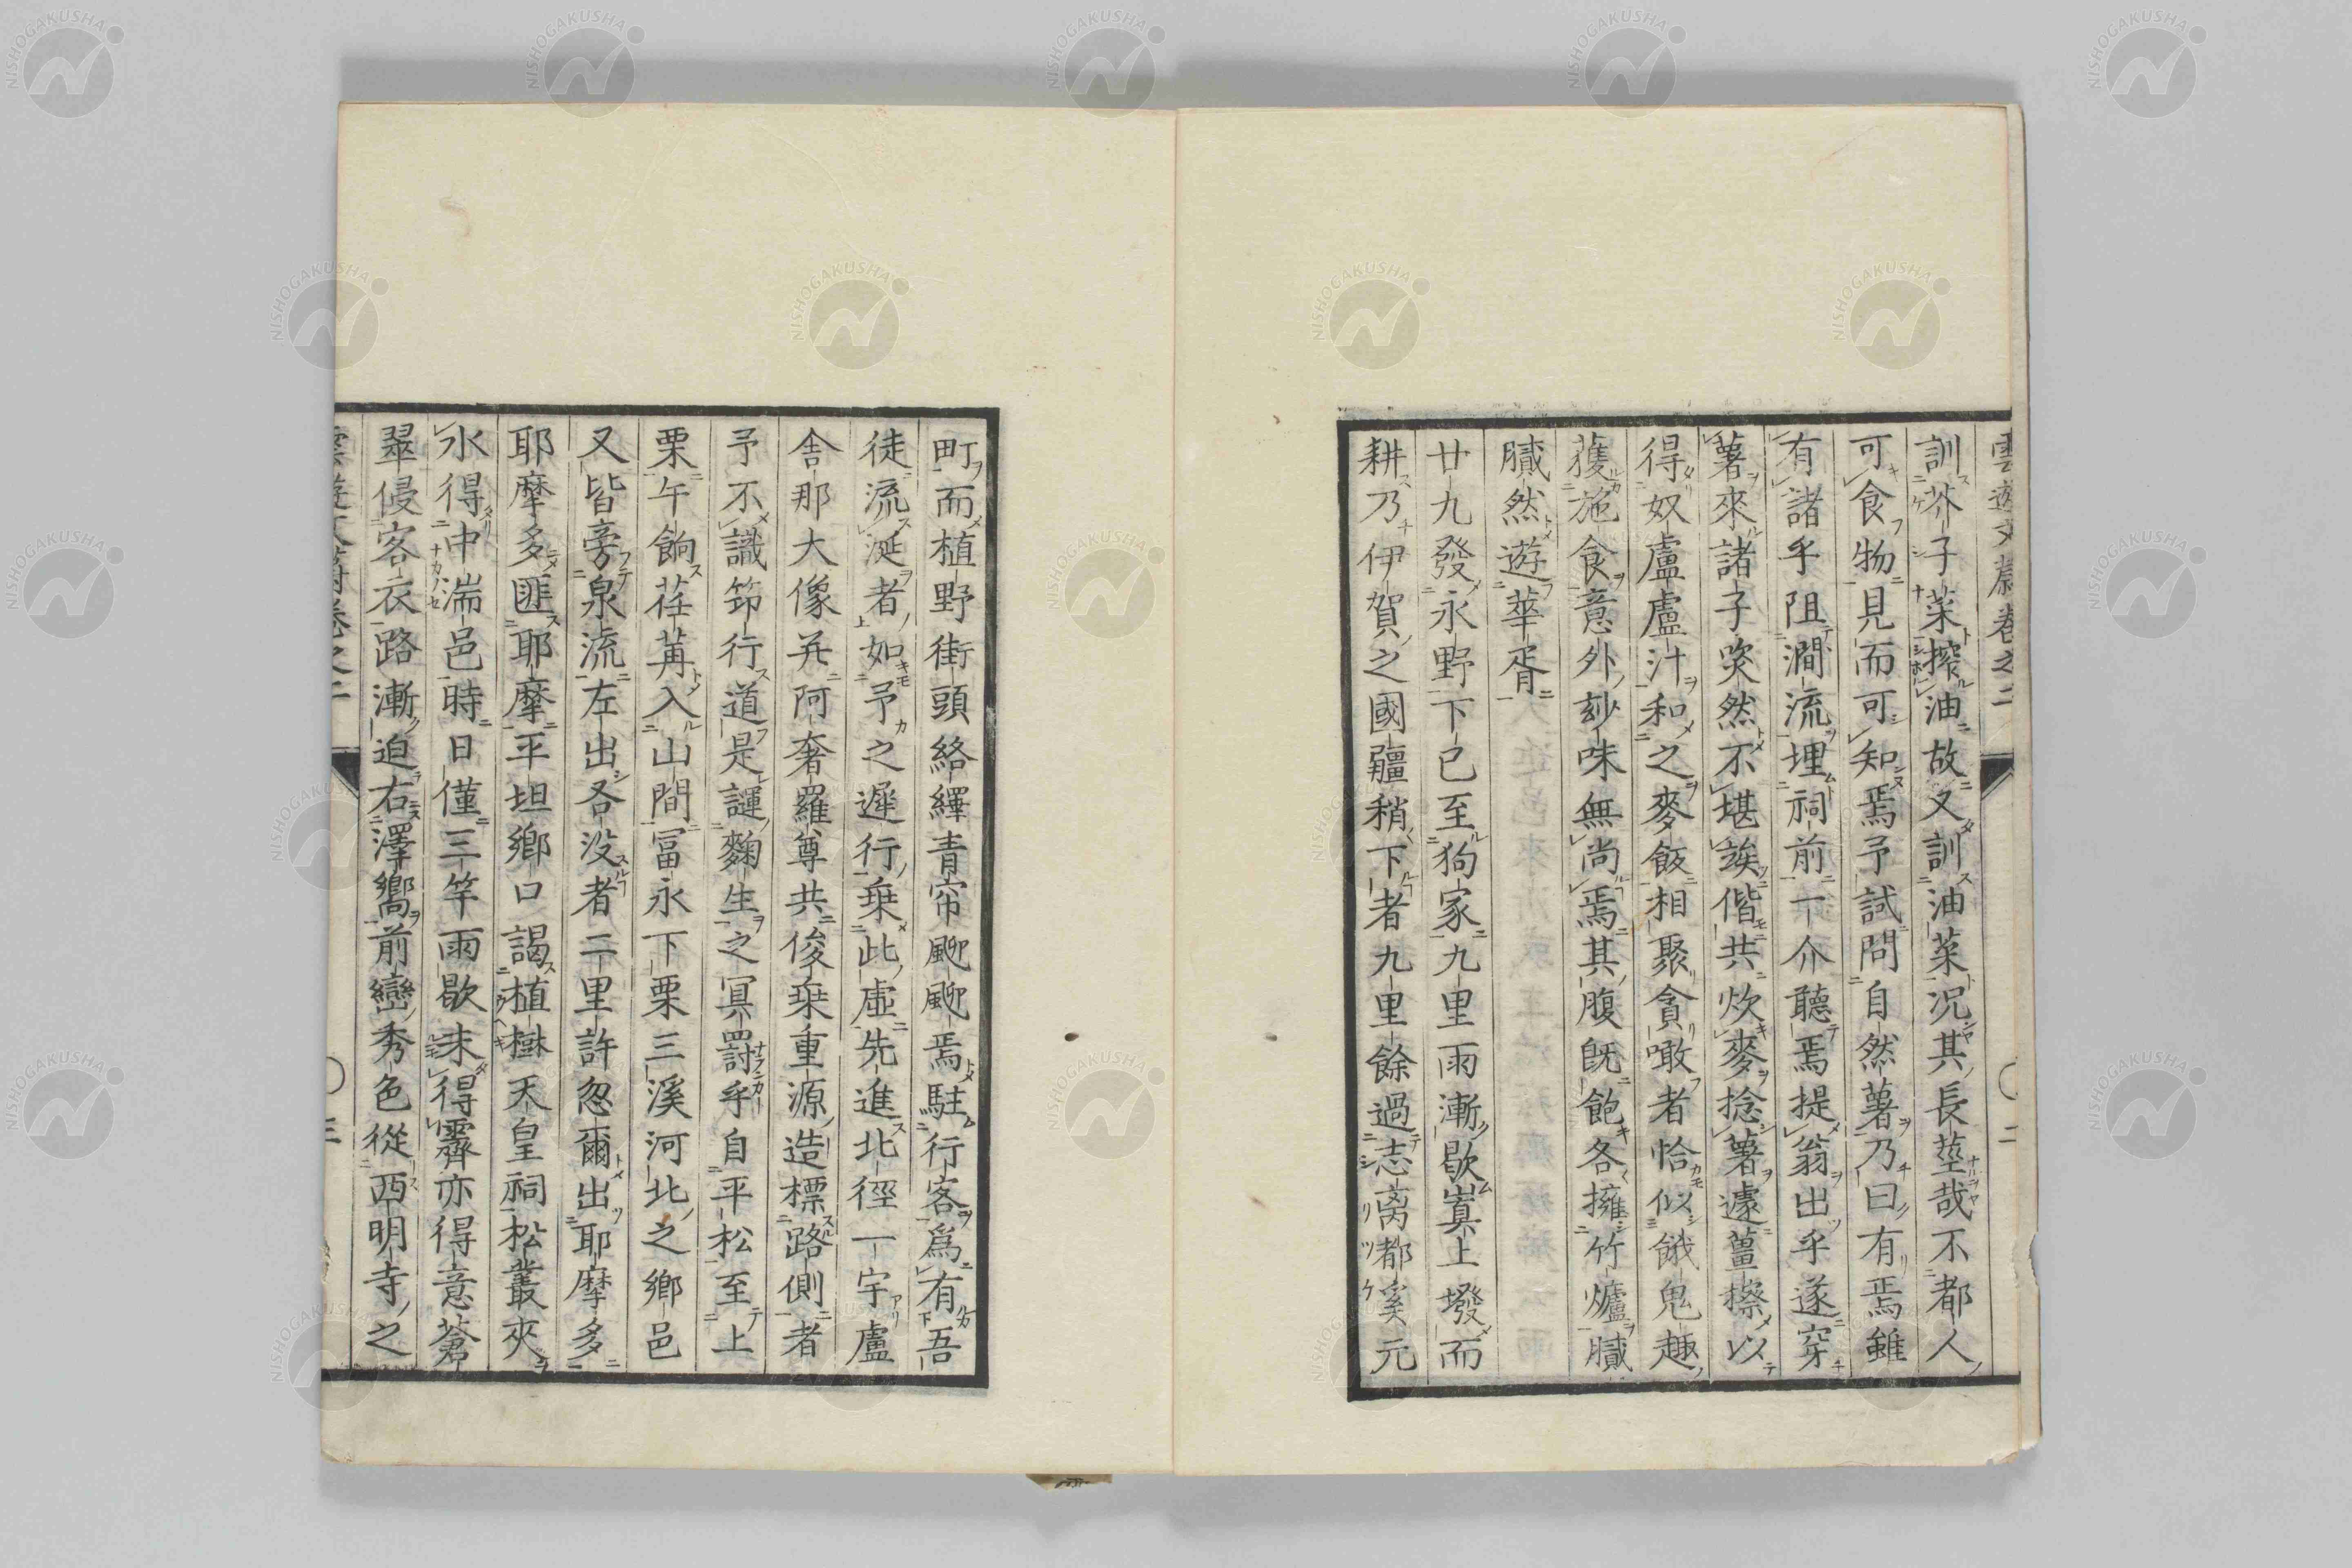 雲遊文蔚卷之二
二
訓芥子菜搾油故又訓油菜況其長莖哉不都人
可食物見而可知焉予試問自然薯乃曰有焉雖
有諸乎阻澗流埋祠前一介聽焉提翁出乎遂穿
薯來諸子喫然不堪誒偕共炊麥捻薯遽薑擦以
得奴盧盧汁和之麥飯相聚貪噉者恰似餓鬼趣
獲施食意外玅味無尚焉其腹既飽各擁竹爐臟
臟然遊華胥
廿九發永野下已至狗家九里雨漸歇嵮上墢而
耕乃伊賀之國疆稍下者九里餘過志离都奚元
町而植野街頭絡繹青帘颲颲焉駐行客為有吾
徒流涎者如予之遲行乗此虛先進北徑一宇盧
舎那大像并阿奢羅尊共俊乗重源造標路側者
予不識笻行道是謹麴生之冥罸乎自平松至上
栗午餉荏苒入山間冨永下栗三溪河北之鄉邑
又皆旁泉流左出各没者二里許忽爾出耶摩多
耶摩多匪耶摩平坦鄉口謁植樹天皇祠松叢夾
水得中湍邑時日僅三竿雨歇未得霽亦得意蒼
翠侵客衣路漸迫右澤嚮前巒秀色從西明寺之
雲遊文蔚卷之二
三
NISHOGAKUSHA